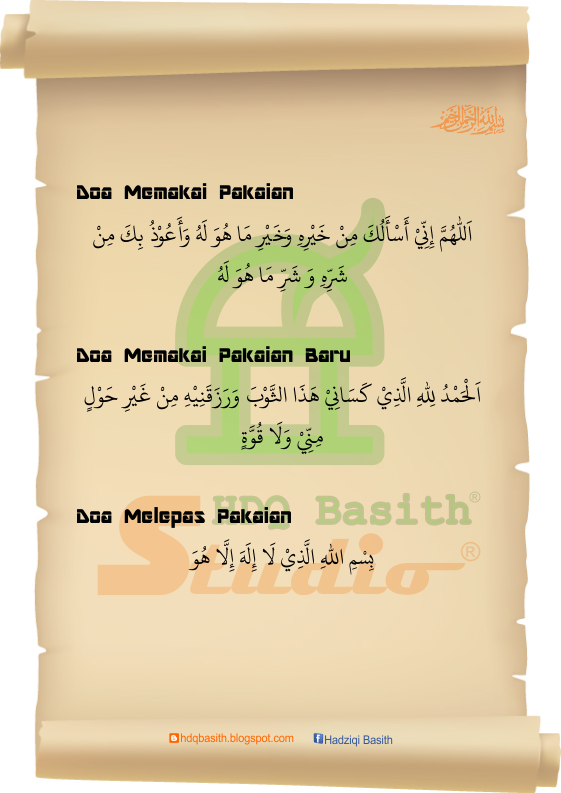 بسم الله الرحمن الرحيم
Doa Memakai Pakaian
اَللّٰهُمَّ إِنِّيْ أَسْأَلُكَ مِنْ خَيْرِهِ وَخَيْرِ مَا هُوَ لَهُ وَأَعُوْذُ بِكَ مِنْ
شَرِّهِ وَ شَرِّ مَا هُوَ لَهُ
Doa Memakai Pakaian Baru
اَلْحَمْدُ لِلهِ الَّذِيْ كَسَانِيْ هَذَا الثَّوْبَ وَرَزَقَنِيْهِ مِنْ غَيْرِ حَوْلٍ
مِنِّيْ وَلَا قُوَّةٍ
HDQ Basith®
Doa Melepas Pakaian
Studio®
بِسْمِ اللهِ الَّذِيْ لَا إِلَهَ إِلَّا هُوَ
hdqbasith.blogspot.com
Hadziqi Basith